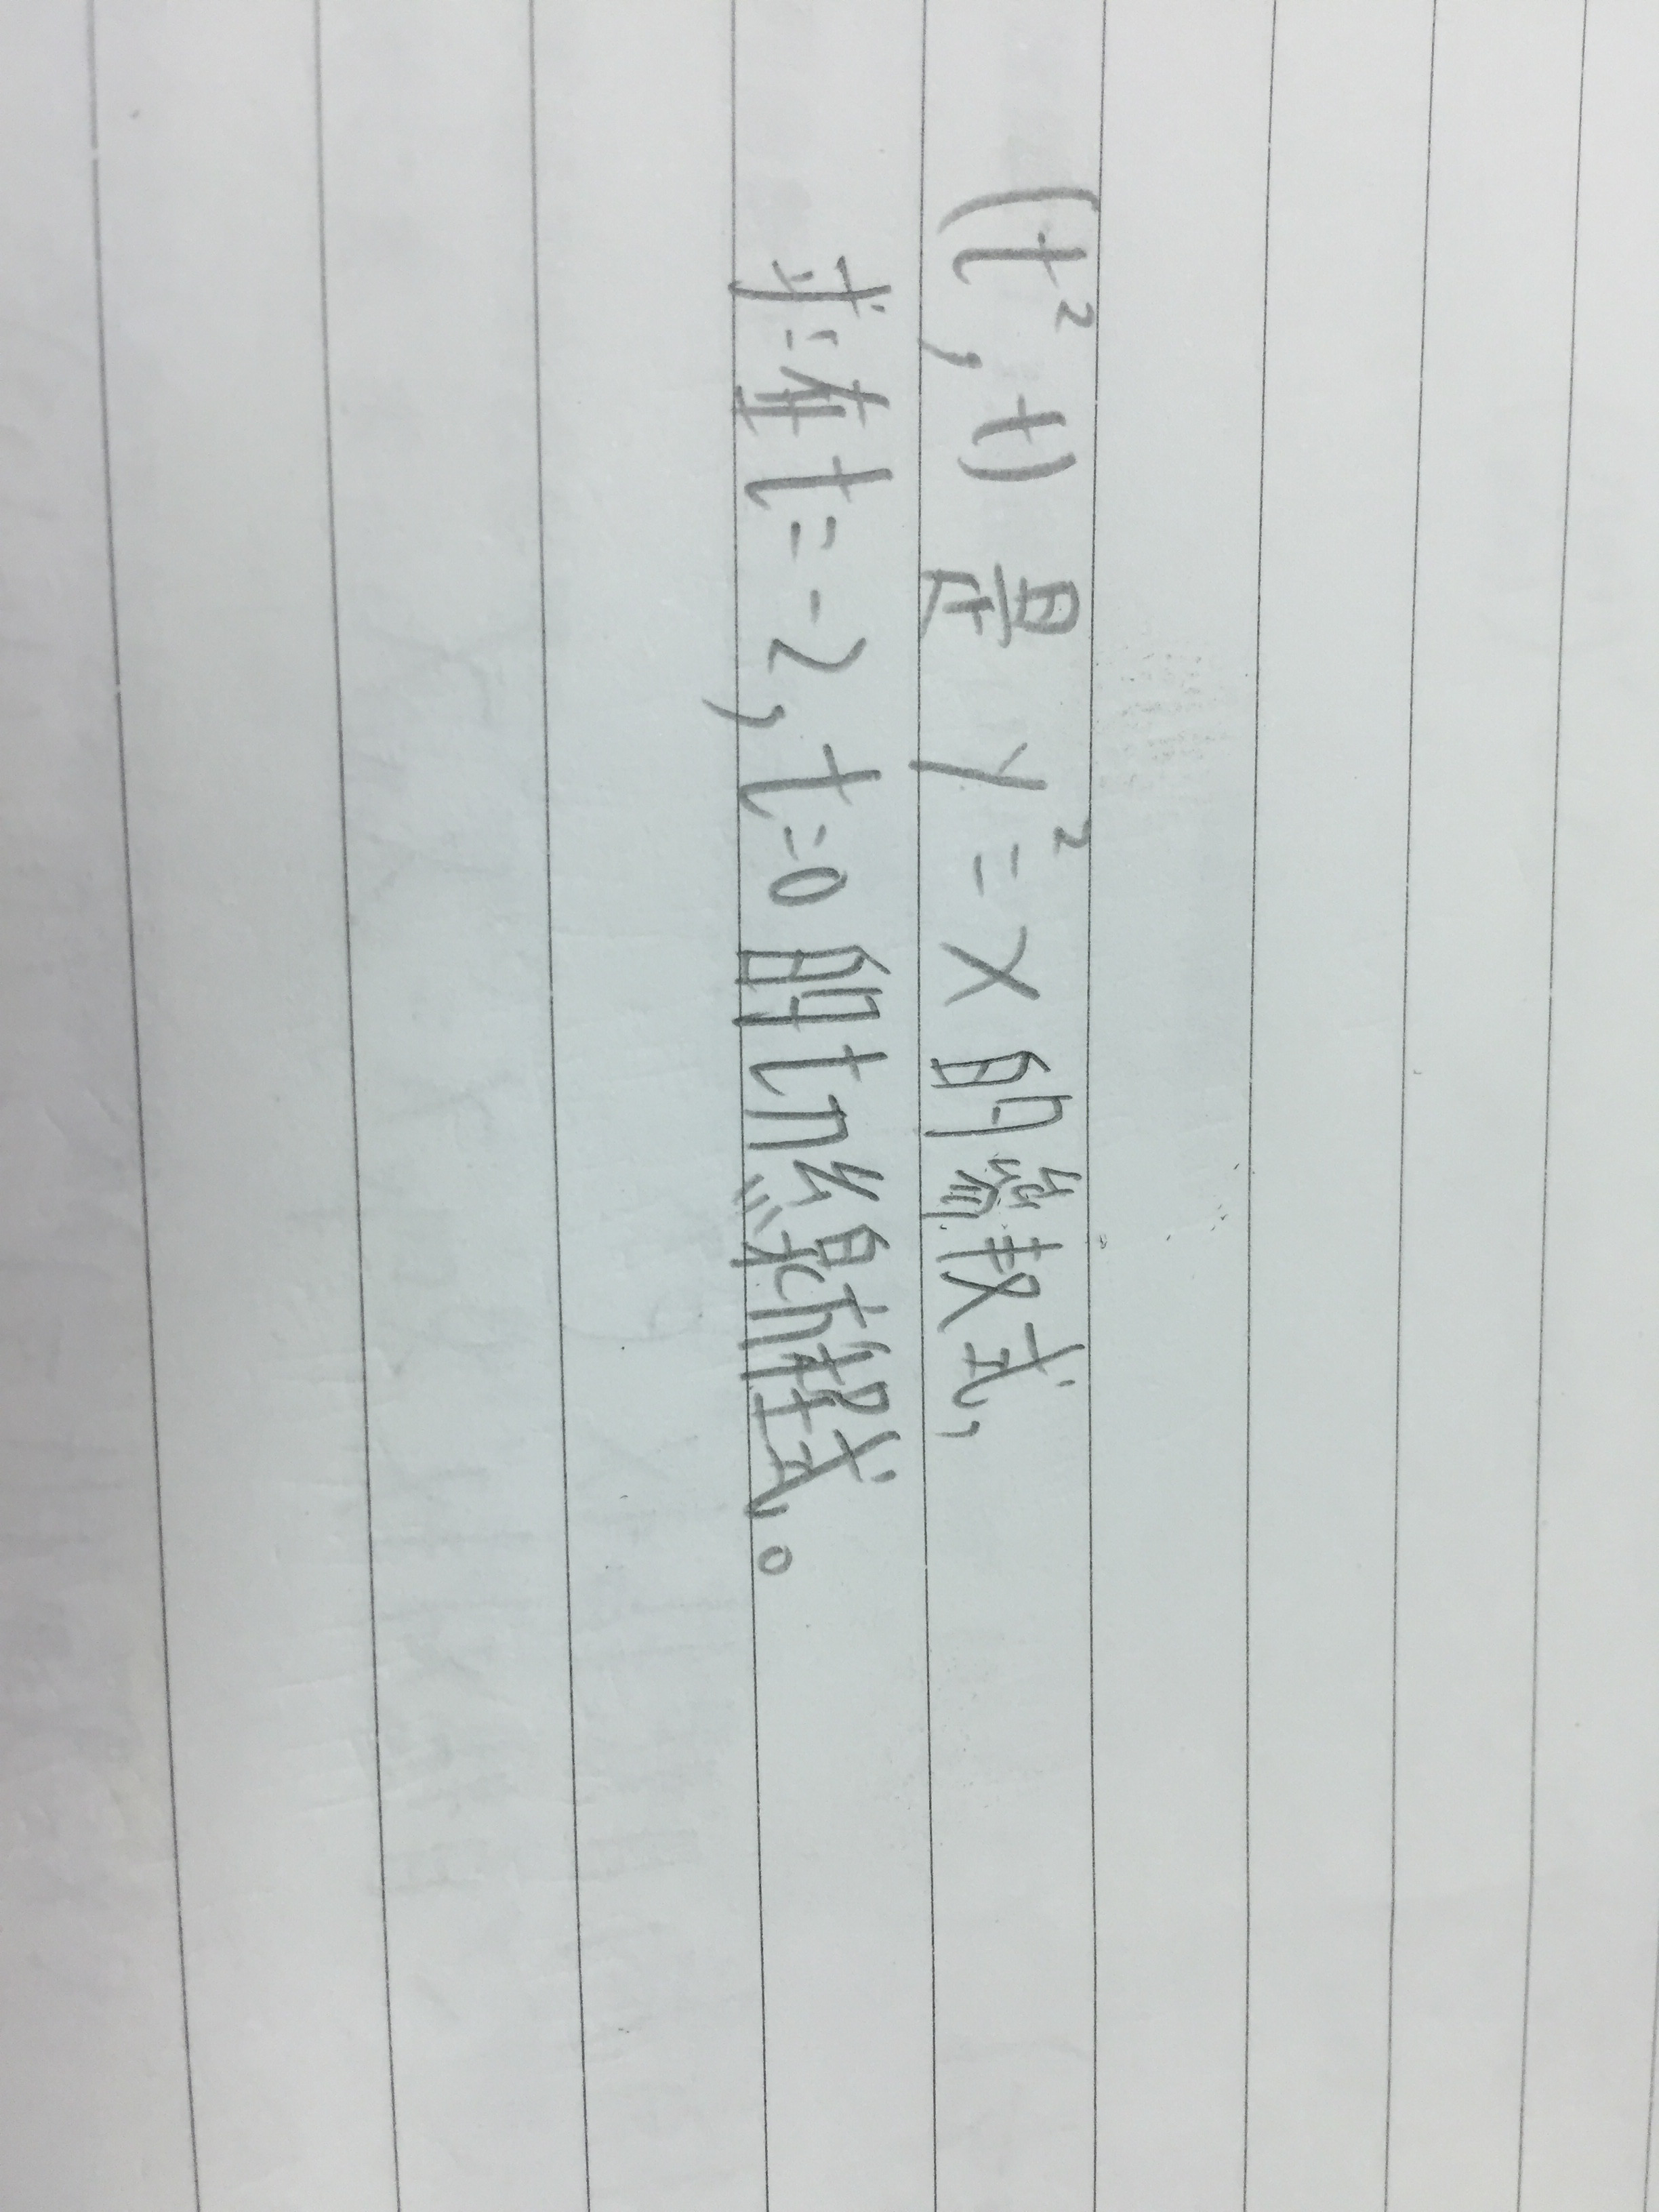 (t², t) 是 y² = x 的參數式,
求在 t = -2, t = 0 的切線方程式。